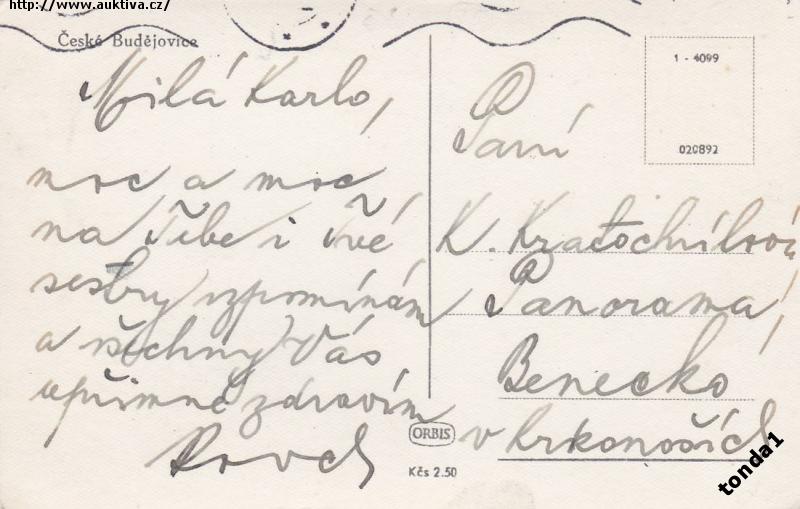 http://www.auktiva.cz/
České Budějovice
Milá Karlo,
moc a moc
na Tebe i Tvé
sestry vzpomínám
a všechny Vás
upřímně zdravím
Paní
K. Kratochvílová
Panorama,
Benecko
v Krkonoších
1 - 4099
020892
ORBIS
Kčs 2.50
tonda1